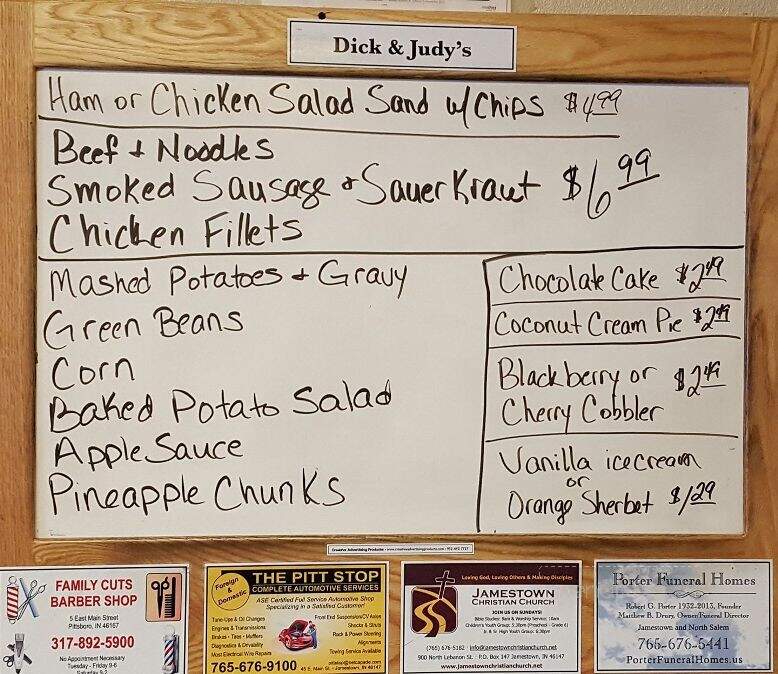 Dick & Judy's
Ham or Chicken Salad Sand w/ Chips $4.99
Beef & Noodles
Smoked Sausage & Sauer Kraut $6.99
Chicken Fillets
Mashed Potatoes & Gravy
Green Beans
Corn
Baked Potato Salad
Apple Sauce
Pineapple Chunks
Chocolate Cake $2.49
Coconut Cream Pie $2.49
Blackberry or $2.49
Cherry Cobbler
Vanilla icecream
or
Orange Sherbet $1.29
FAMILY CUTS
BARBER SHOP
5 East Main Street
Pittsboro, IN 46167
317-892-5900
No Appointment Necessary
Tuesday - Friday 9-6
Saturday 9-2
Foreign & Domestic
THE PITT STOP
COMPLETE AUTOMOTIVE SERVICES
ASE Certified Full Service Automotive Shop
Specializing in a Satisfied Customer!
Tune-Ups & Oil Changes
Engines & Transmissions
Brakes - Tires - Mufflers
Diagnostics & Drivability
Most Electrical Wire Repairs
Front End Suspension/CV Axles
Shocks & Struts
Rack & Power Steering
Alignments
Towing Service Available
765-676-9100
45 E. Main St. - Jamestown, IN 46147
Loving God, Loving Others & Making Disciples
JAMESTOWN
CHRISTIAN CHURCH
JOIN US ON SUNDAYS!
(765) 676-5182 info@jamestownchristianchurch.net
900 North Lebanon St. P.O. Box 147 Jamestown, IN 46147
www.jamestownchristianchurch.net
Porter Funeral Homes
Robert G. Porter 1932-2013, Founder
Matthew B. Drury, Owner/Funeral Director
Jamestown and North Salem
765-676-5441
PorterFuneralHomes.us